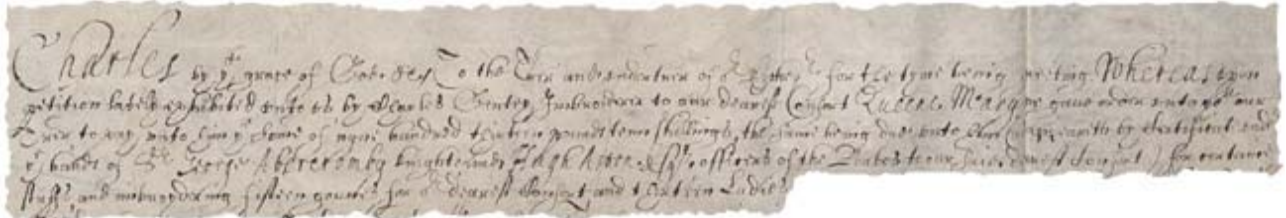 Charles by ye grace of God &c. To the Trẽr and undertrẽr of or Excheqr for the tyme being greeting Whereas upon
petition lately exhibited unto us by Charles Gentey Imbroiderer to our dearest Consort Queene Mary we gave order unto you our
Trẽr to pay unto him ye some of nyne hundred thirteen pounds tenn shillings, the same being due unto him by certificat and
ye hands of Sr George Abercromby knight and Hugh officers of the Robes to our dearest Consort for certaine
stuffs and imbroydering fifteen gounes for or dearest Consort and thirteen Ladies